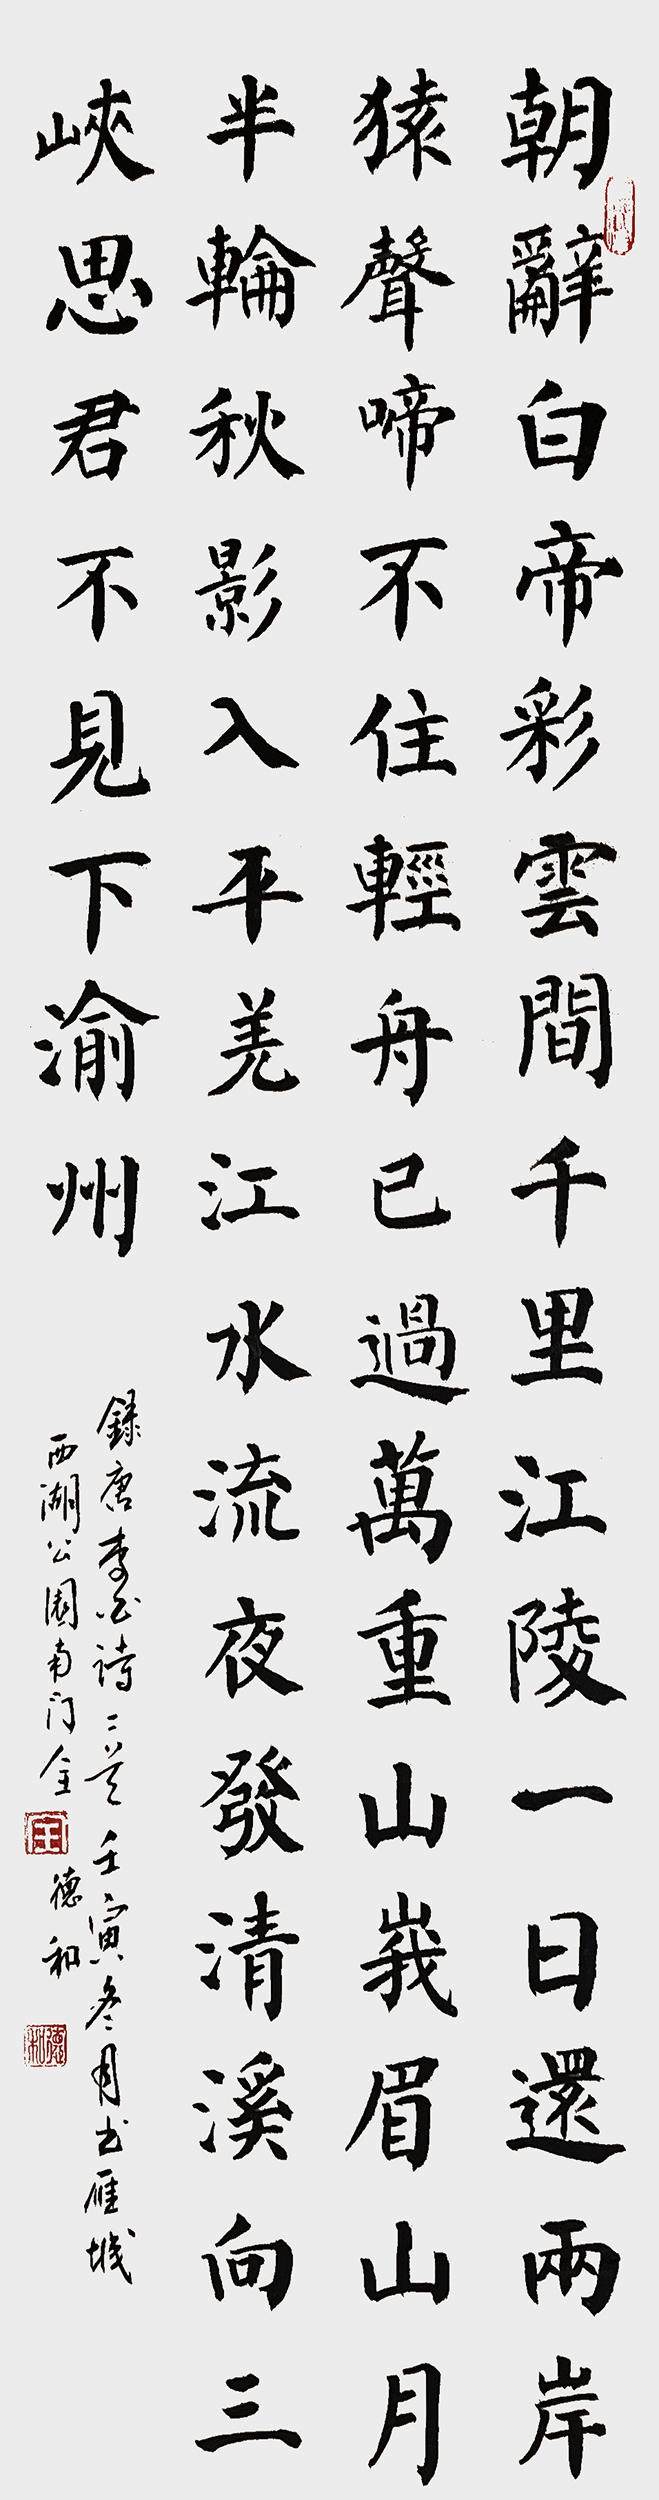 朝辭白帝彩雲間千里江陵一日還兩岸
猿聲啼不住輕舟已過萬重山峩眉山月
半輪秋影入平羌江水流夜發清溪向三
峽思君不見下渝州
錄唐李白诗二首 壬寅叁月书雁城
西湖公園南门 全德和